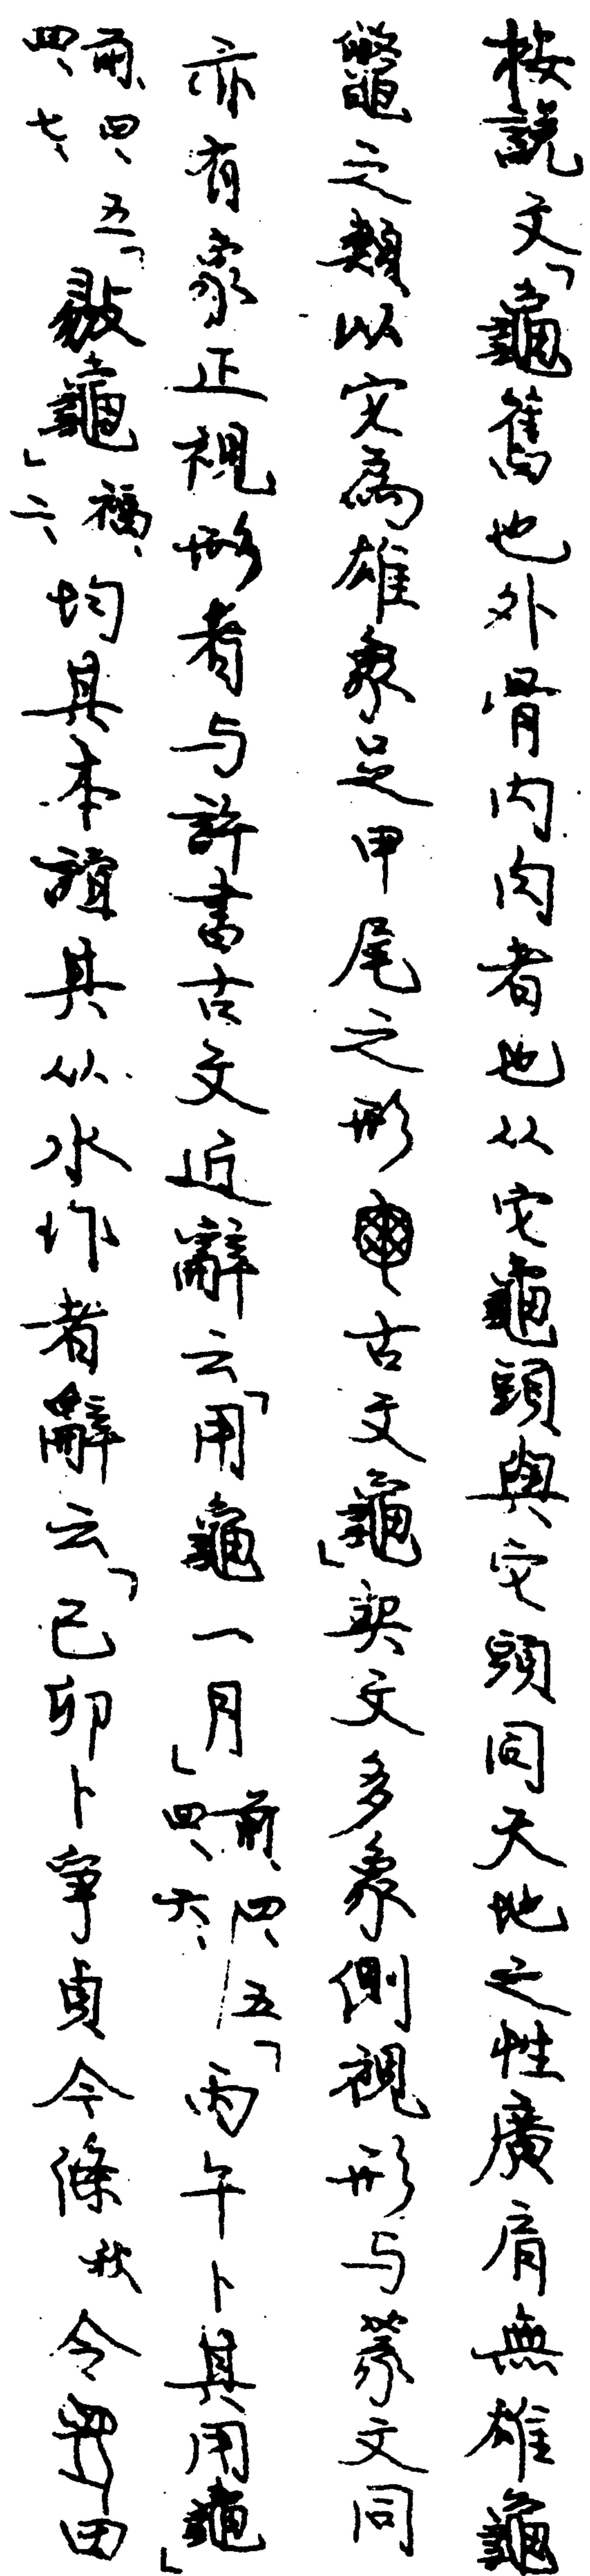 按說文「龜舊也外骨内肉者也从它龜頭與它頭同天地之性廣肩無雄龜
鼈之類以它為雄象足甲尾之形古文龜」契文多象側視形与篆文同
亦有象正視形者与許書古文近辭云「用龜一月」前、四、五四、六、「丙午卜其用龜」
前、四、五四、七、「龜」福、二、均其本誼其从水作者辭云「己卯卜爭貞今條秋令田